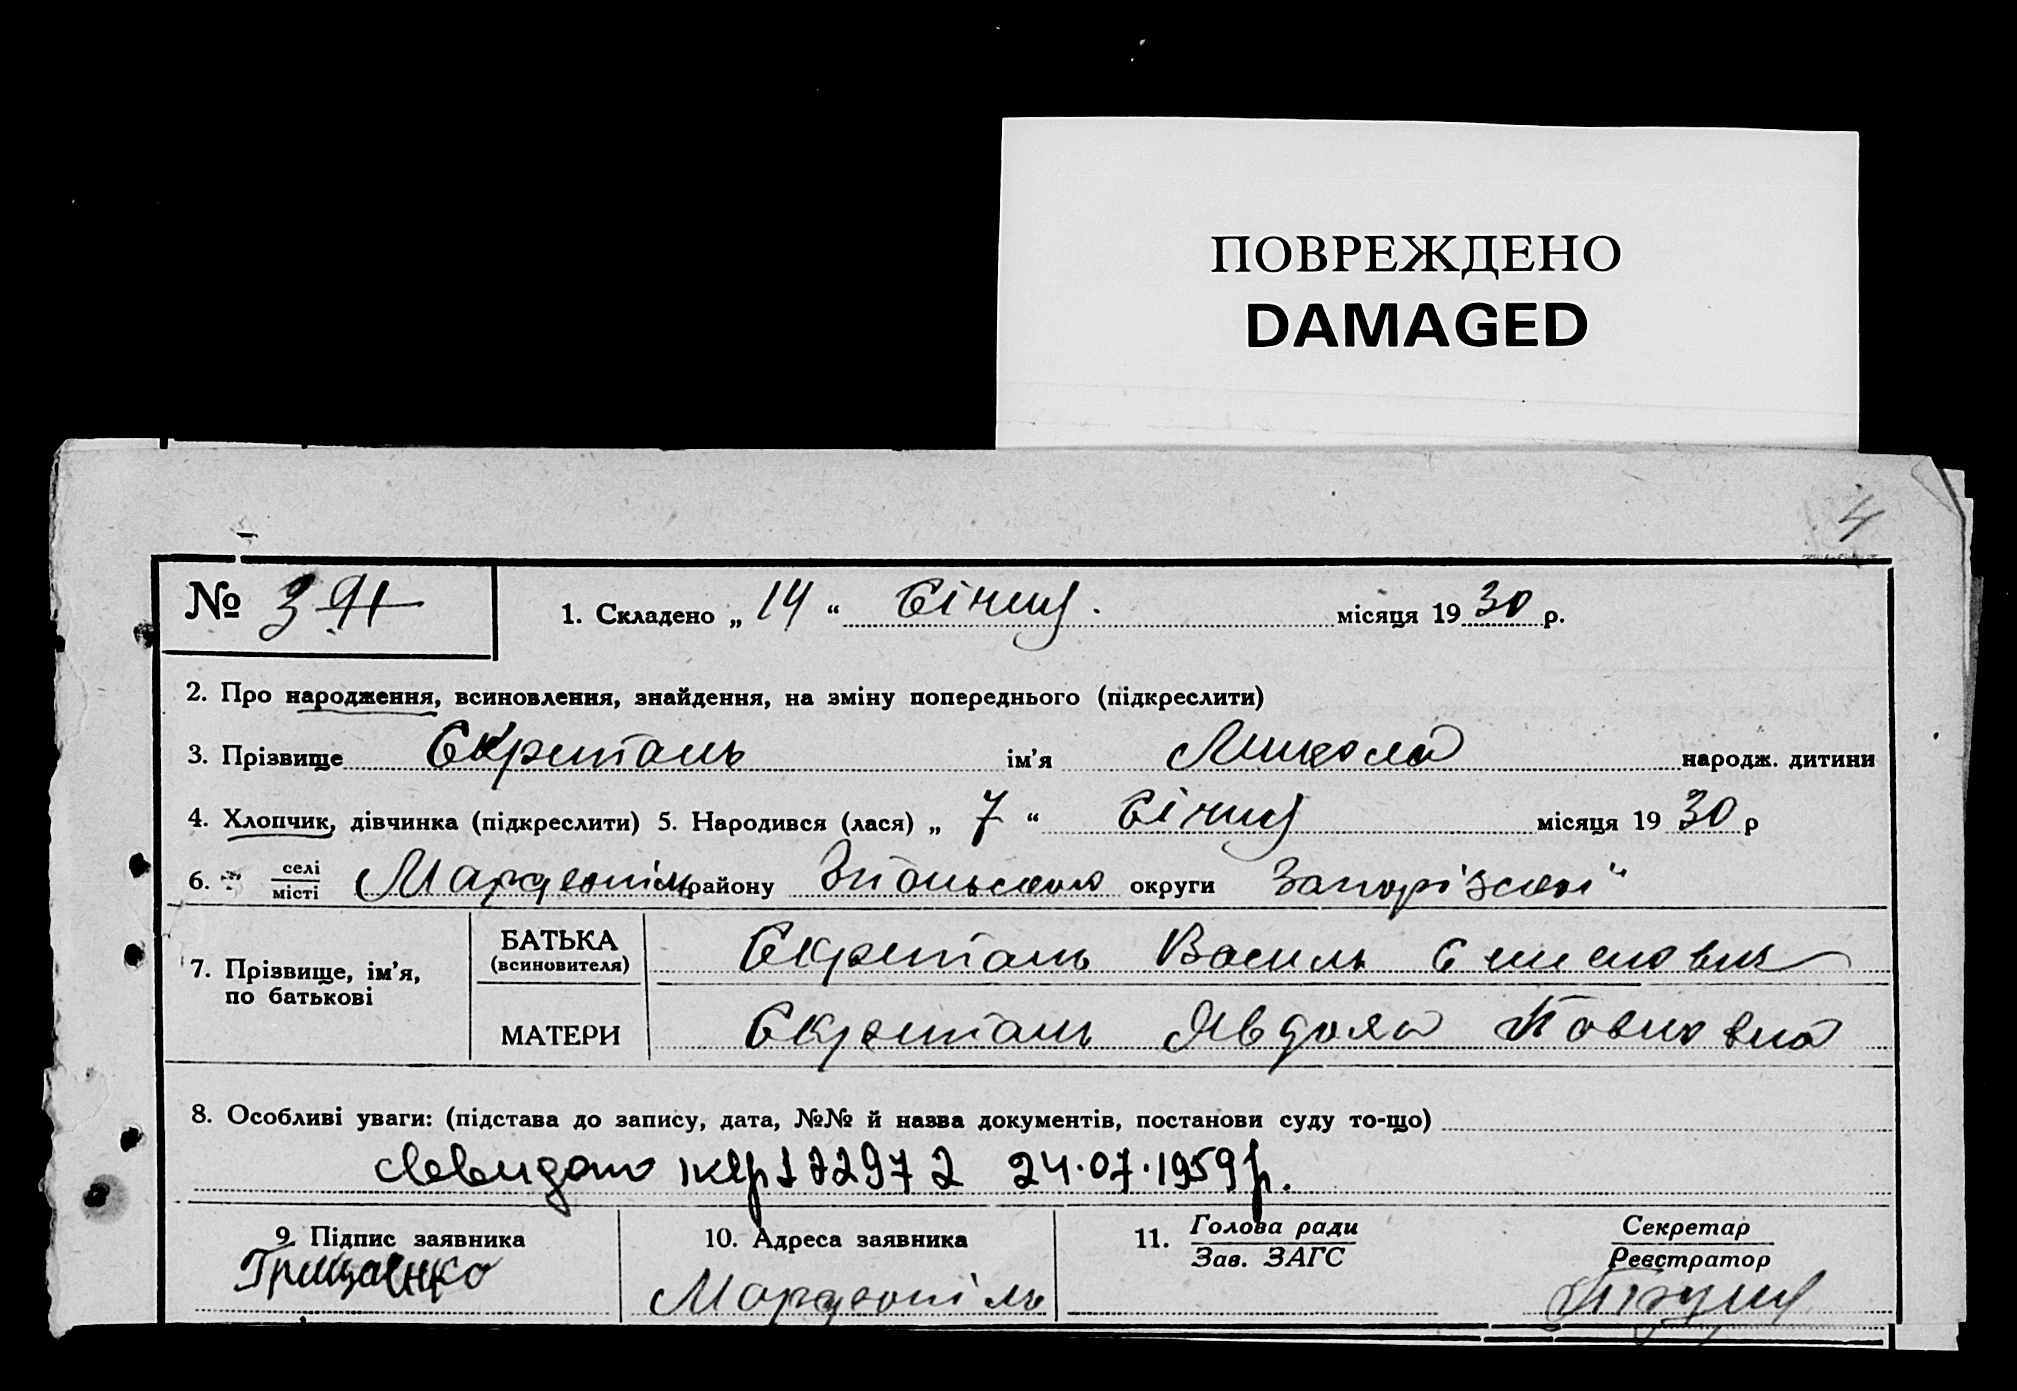 ПОВРЕЖДЕНО
DAMAGED
4
№ 3
1. Складено „ 14 “ Січня місяця 19 30 р.
2. Про народження, всиновлення, знайдення, на зміну попереднього (підкреслити)
3. Прізвище Скрипаль ім’я Микола народж. дитини
4. Хлопчик, дівчинка (підкреслити) 5. Народився (лася) „ 7 “ Січня місяця 19 30 р
6. селі
місті району округи Запорізскої
7. Прізвище, ім’я,
по батькові
БАТЬКА
(всиновителя)
Скрипаль Василь
МАТЕРИ
Скрипаль Явдоха Павловна
8. Особливі уваги: (підстава до запису, дата, №№ й назва документів, постанови суду то-що)
24.07.1959 р.
9. Підпис заявника
Грищаєнко
10. Адреса заявника
11. Голова ради
Зав. ЗАГС
Секретар
Реєстратор